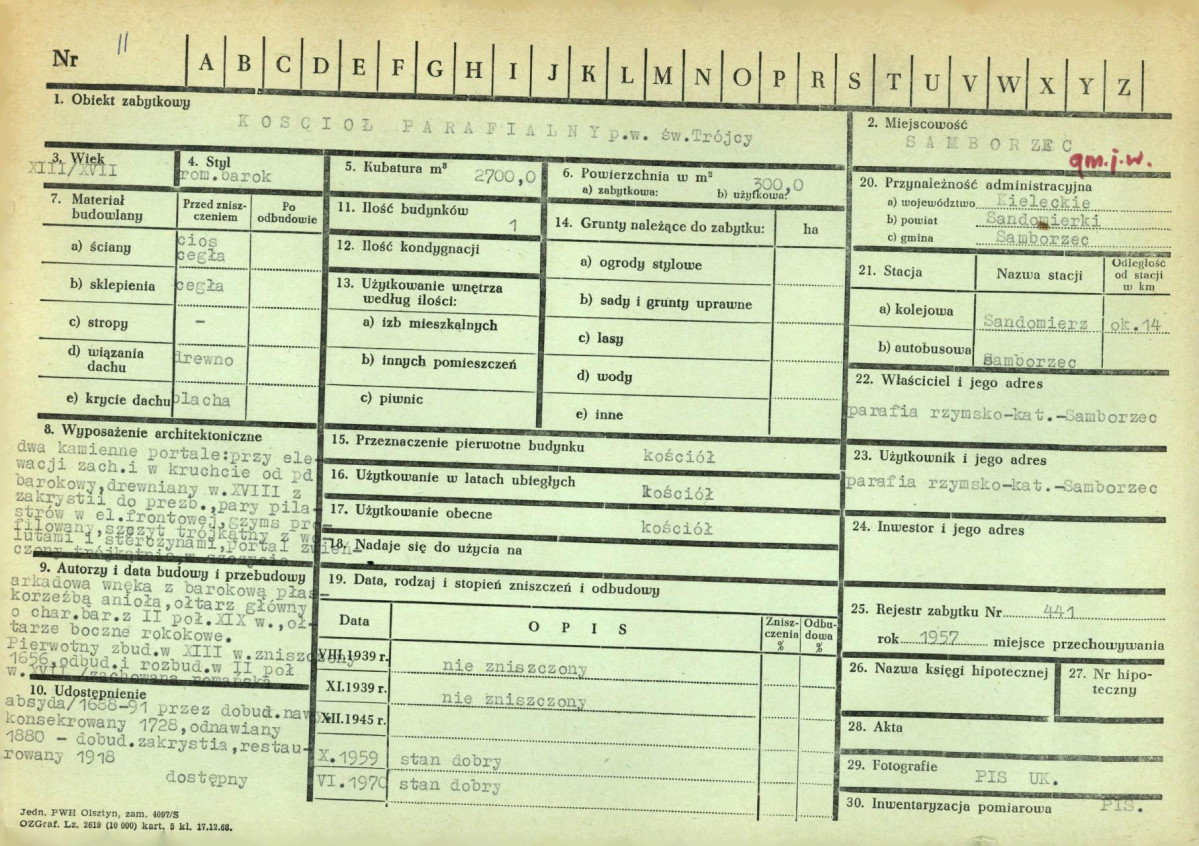 Nr 11 A B C D E F G H I J K L M N O P R S T U V W X Y Z
1. Obiekt zabytkowy
KOSCIOŁ PARAFIALNY p.w. św.Trójcy
2. Miejscowość
SAMBORZEC
gm.j.w.
3. Wiek
XIII/XVII
4. Styl
rom.barok
5. Kubatura m³ 2700,0
6. Powierzchnia w m²
a) zabytkowa: b) użytkowa:
300,0
7. Materiał budowlany
Przed zniszczeniem
Po odbudowie
a) ściany
cios
cegła
b) sklepienia cegła
c) stropy -
d) wiązania dachu drewno
e) krycie dachu blacha
8. Wyposażenie architektoniczne
dwa kamienne portale:przy ele-
wacji zach.i w kruchcie od pd
barokowy,drewniany w.XVIII z
zakrystil do prezb.,pary pila-
strów w el.frontowej,gzyms pro-
filowany,szczyt trójkątny z wo-
lutami i sterczynami,portal zwień-
czony trójkątnie w szczycie
9. Autorzy i data budowy i przebudowy
arkadowa wnęka z barokową płas-
korzeźbą anioła,ołtarz główny
o char.bar.z II poł.XIX w.,oł-
tarze boczne rokokowe.
Pierwotny zbud.w XIII w.zniszczony
1656,odbud.i rozbud.w II poł
w.XVII /zachowana romańska
10. Udostępnienie
absyda/1688-91 przez dobud.nawy
konsekrowany 1728,odnawiany
1880 - dobud.zakrystia,restau-
rowany 1918
dostępny
11. Ilość budynków
1
12. Ilość kondygnacji
13. Użytkowanie wnętrza
według ilości:
a) izb mieszkalnych
b) innych pomieszczeń
c) piwnic
14. Grunty należące do zabytku: ha
a) ogrody stylowe
b) sady i grunty uprawne
c) lasy
d) wody
e) inne
15. Przeznaczenie pierwotne budynku
kościół
16. Użytkowanie w latach ubiegłych
kościół
17. Użytkowanie obecne
kościół
18. Nadaje się do użycia na
19. Data, rodzaj i stopień zniszczeń i odbudowy
Data O P I S Zniszczenia % Odbudowa %
VIII.1939 r. nie zniszczony
XI.1939 r. nie zniszczony
XII.1945 r.
X.1959 stan dobry
VI.1970 stan dobry
20. Przynależność administracyjna
a) województwo Kieleckie
b) powiat Sandomierki
c) gmina Samborzec
21. Stacja Nazwa stacji Odległość od stacji w km
a) kolejowa Sandomierz ok.14
b) autobusowa Samborzec
22. Właściciel i jego adres
parafia rzymsko-kat.-Samborzec
23. Użytkownik i jego adres
parafia rzymsko-kat.-Samborzec
24. Inwestor i jego adres
25. Rejestr zabytku Nr 441
rok 1957 miejsce przechowywania
26. Nazwa księgi hipotecznej
27. Nr hipo-
teczny
28. Akta
29. Fotografie
PIS UK.
30. Inwentaryzacja pomiarowa PIS.
Jedn. PWH Olsztyn, zam. 4097/S
OZGraf. Lz. 2619 (10 000) kart. 5 kl. 17.12.68.